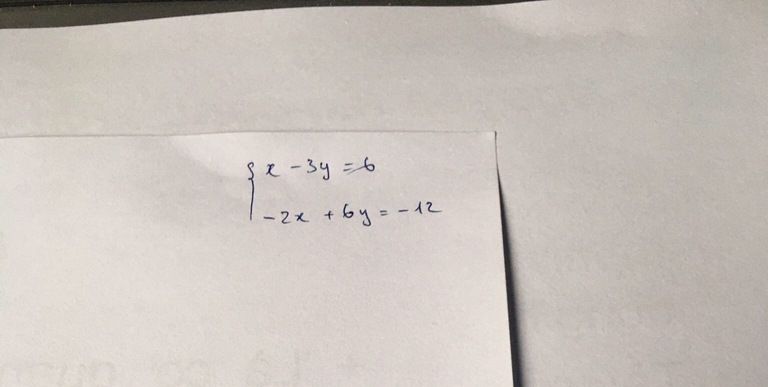 { x - 3y = 6
-2x + 6y = -12